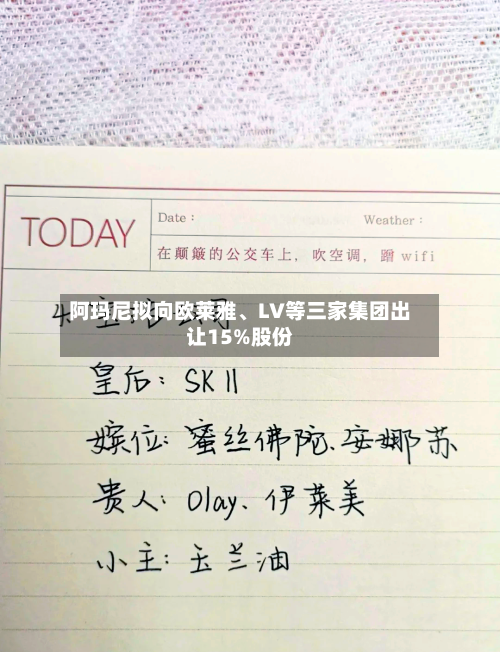 TODAY
Date：
Weather：
在颠簸的公交车上，吹空调，蹭 wifi
阿玛尼拟向欧莱雅、LV等三家集团出
让15%股份
皇后：SKⅡ
嫔位：蜜丝佛陀、安娜苏
贵人：Olay、伊莱美
小主：玉兰油